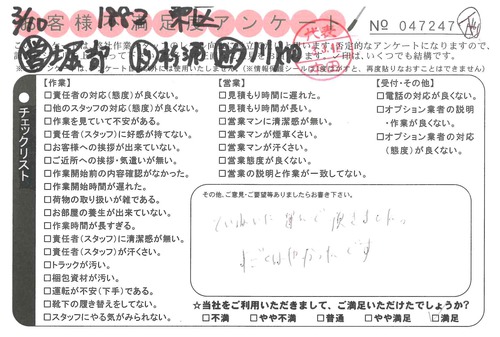 お客様不満足度アンケート
No 047247
代表
チェックリスト
【作業】
□責任者の対応(態度)が良くない。
□他のスタッフの対応(態度)が良くない。
□作業を見ていて不安がある。
□責任者(スタッフ)に好感が持てない。
□お客様への挨拶が出来ていない。
□ご近所への挨拶・気遣いが無い。
□作業開始前の内容確認がなかった。
□作業開始時間が遅れた。
□荷物の取り扱いが雑である。
□お部屋の養生が出来ていない。
□作業時間が長すぎる。
□責任者(スタッフ)に清潔感が無い。
□責任者(スタッフ)が汗くさい。
□トラックが汚い。
□梱包資材が汚い。
□運転が不安(下手)である。
□靴下の履き替えをしてない。
□スタッフにやる気がみられない。
【営業】
□見積もり時間に遅れた。
□見積もり時間が長い。
□営業マンに清潔感が無い。
□営業マンが煙草くさい。
□営業マンが汗くさい。
□営業態度が良くない。
□営業の説明と作業が一致してない。
【受付・その他】
□電話の対応が良くない。
□オプション業者の説明
・作業が良くない。
□オプション業者の対応
(態度)が良くない。
その他、ご意見・ご要望等ありましたらお書き下さい。
ていねいに運んで頂きました。
すごくはやかったです
☆当社をご利用いただきまして、ご満足いただけたでしょうか?
□不満 □やや不満 □普通 □やや満足 □満足